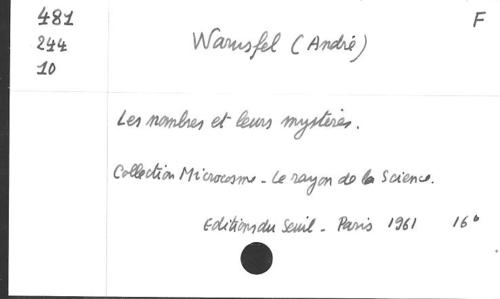 481
244
10
F
Warusfel (André)
Les nombres et leurs mystères.
Collection Microcosme - Le rayon de la Science.
Editions du Seuil - Paris 1961 16°